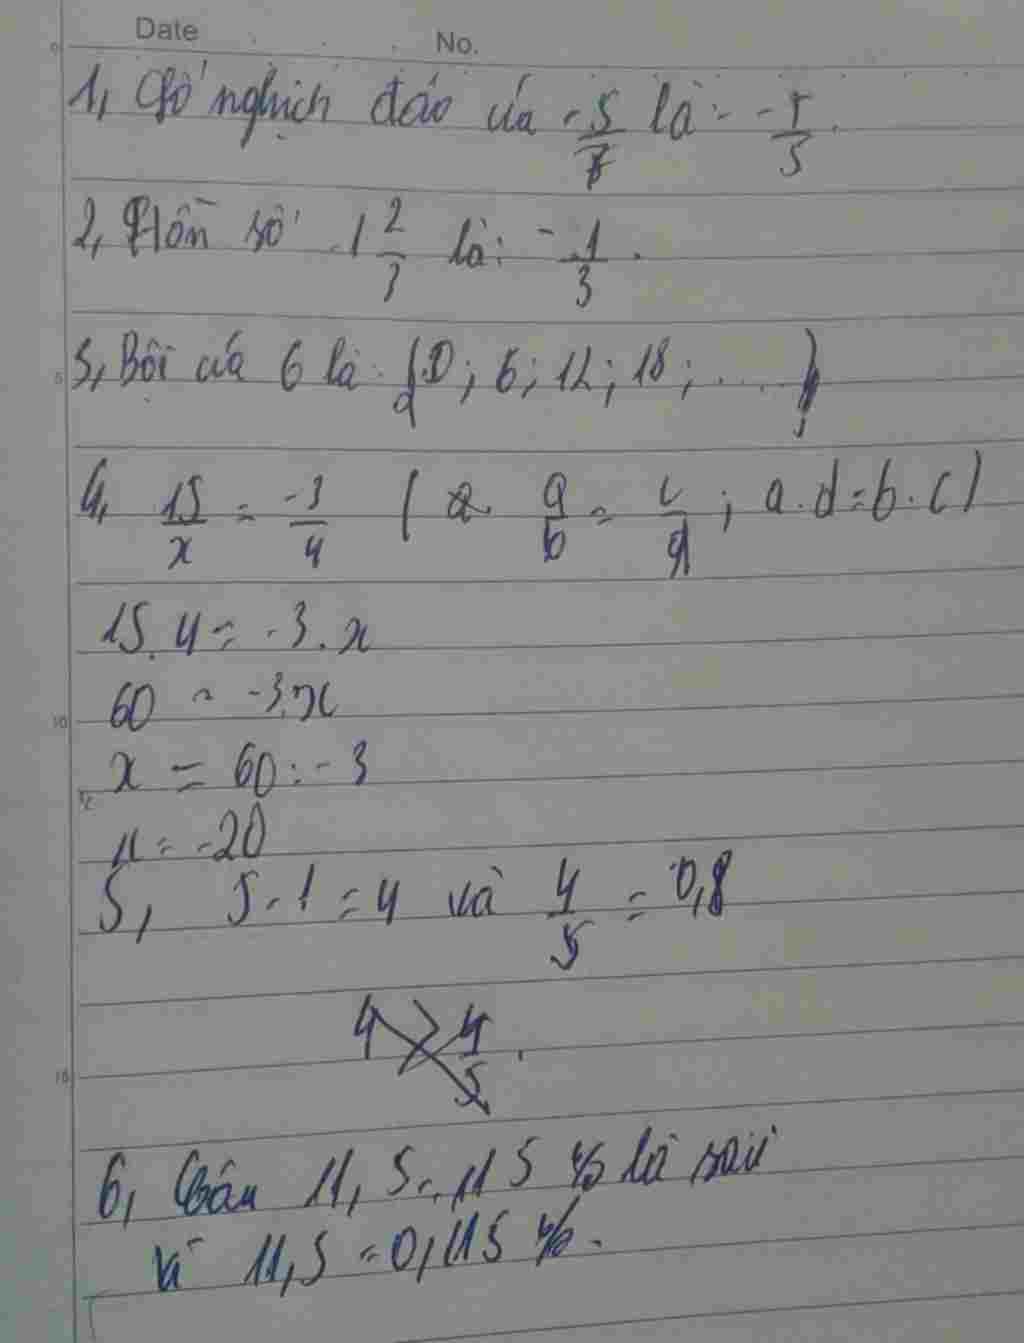 Date No.
1, Số nghịch đảo của -5/7 là: -7/5.
2, Hỗn số 1 2/3 là: -1/3.
3, Bội của 6 là: {0; 6; 12; 18; ....}
4, 15/x = -3/4 ( a/b = c/d; a.d=b.c)
15.4 = -3.x
60 = -3.x
x = 60:-3
x = -20
5, 5-1=4 và 4/5 = 0,8
4 > 4/5.
6, Câu 11,5=115% là sai
Vì 11,5=0,115%.